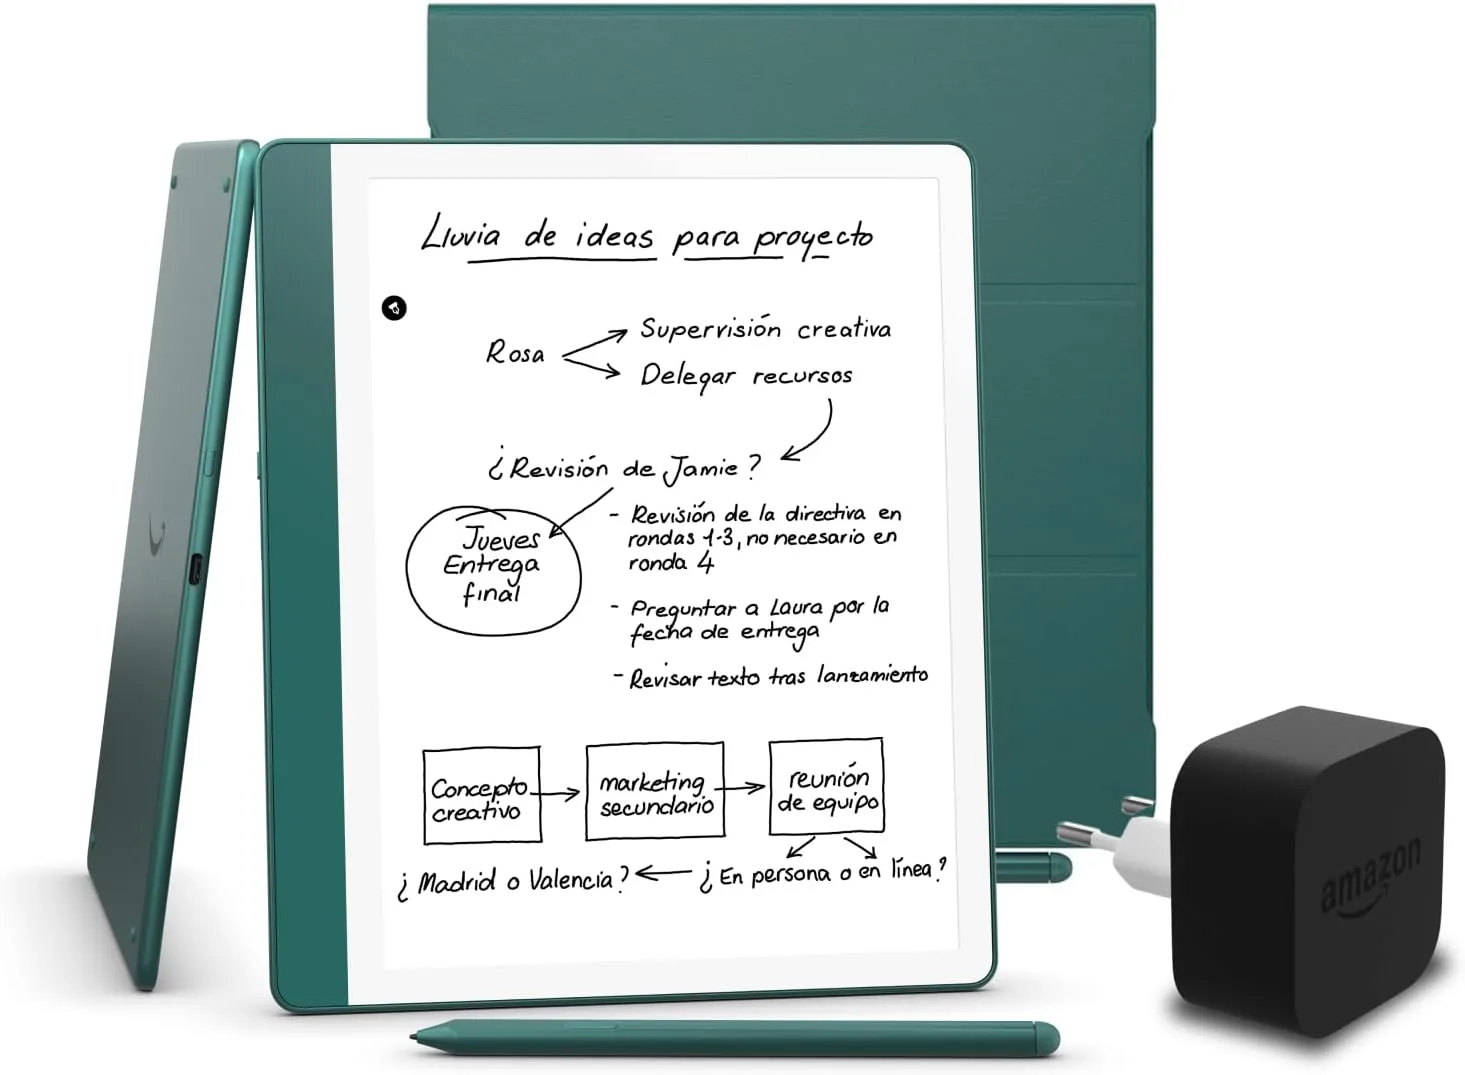 Lluvia de ideas para proyecto
Rosa
Supervisión creativa
Delegar recursos
¿Revisión de Jamie?
Jueves
Entrega
final
- Revisión de la directiva en
rondas 1-3, no necesario en
ronda 4
- Preguntar a Laura por la
fecha de entrega
- Revisar texto tras lanzamiento
Concepto
creativo
marketing
secundario
reunión
de equipo
¿Madrid o Valencia?
¿En persona o en línea?
amazon